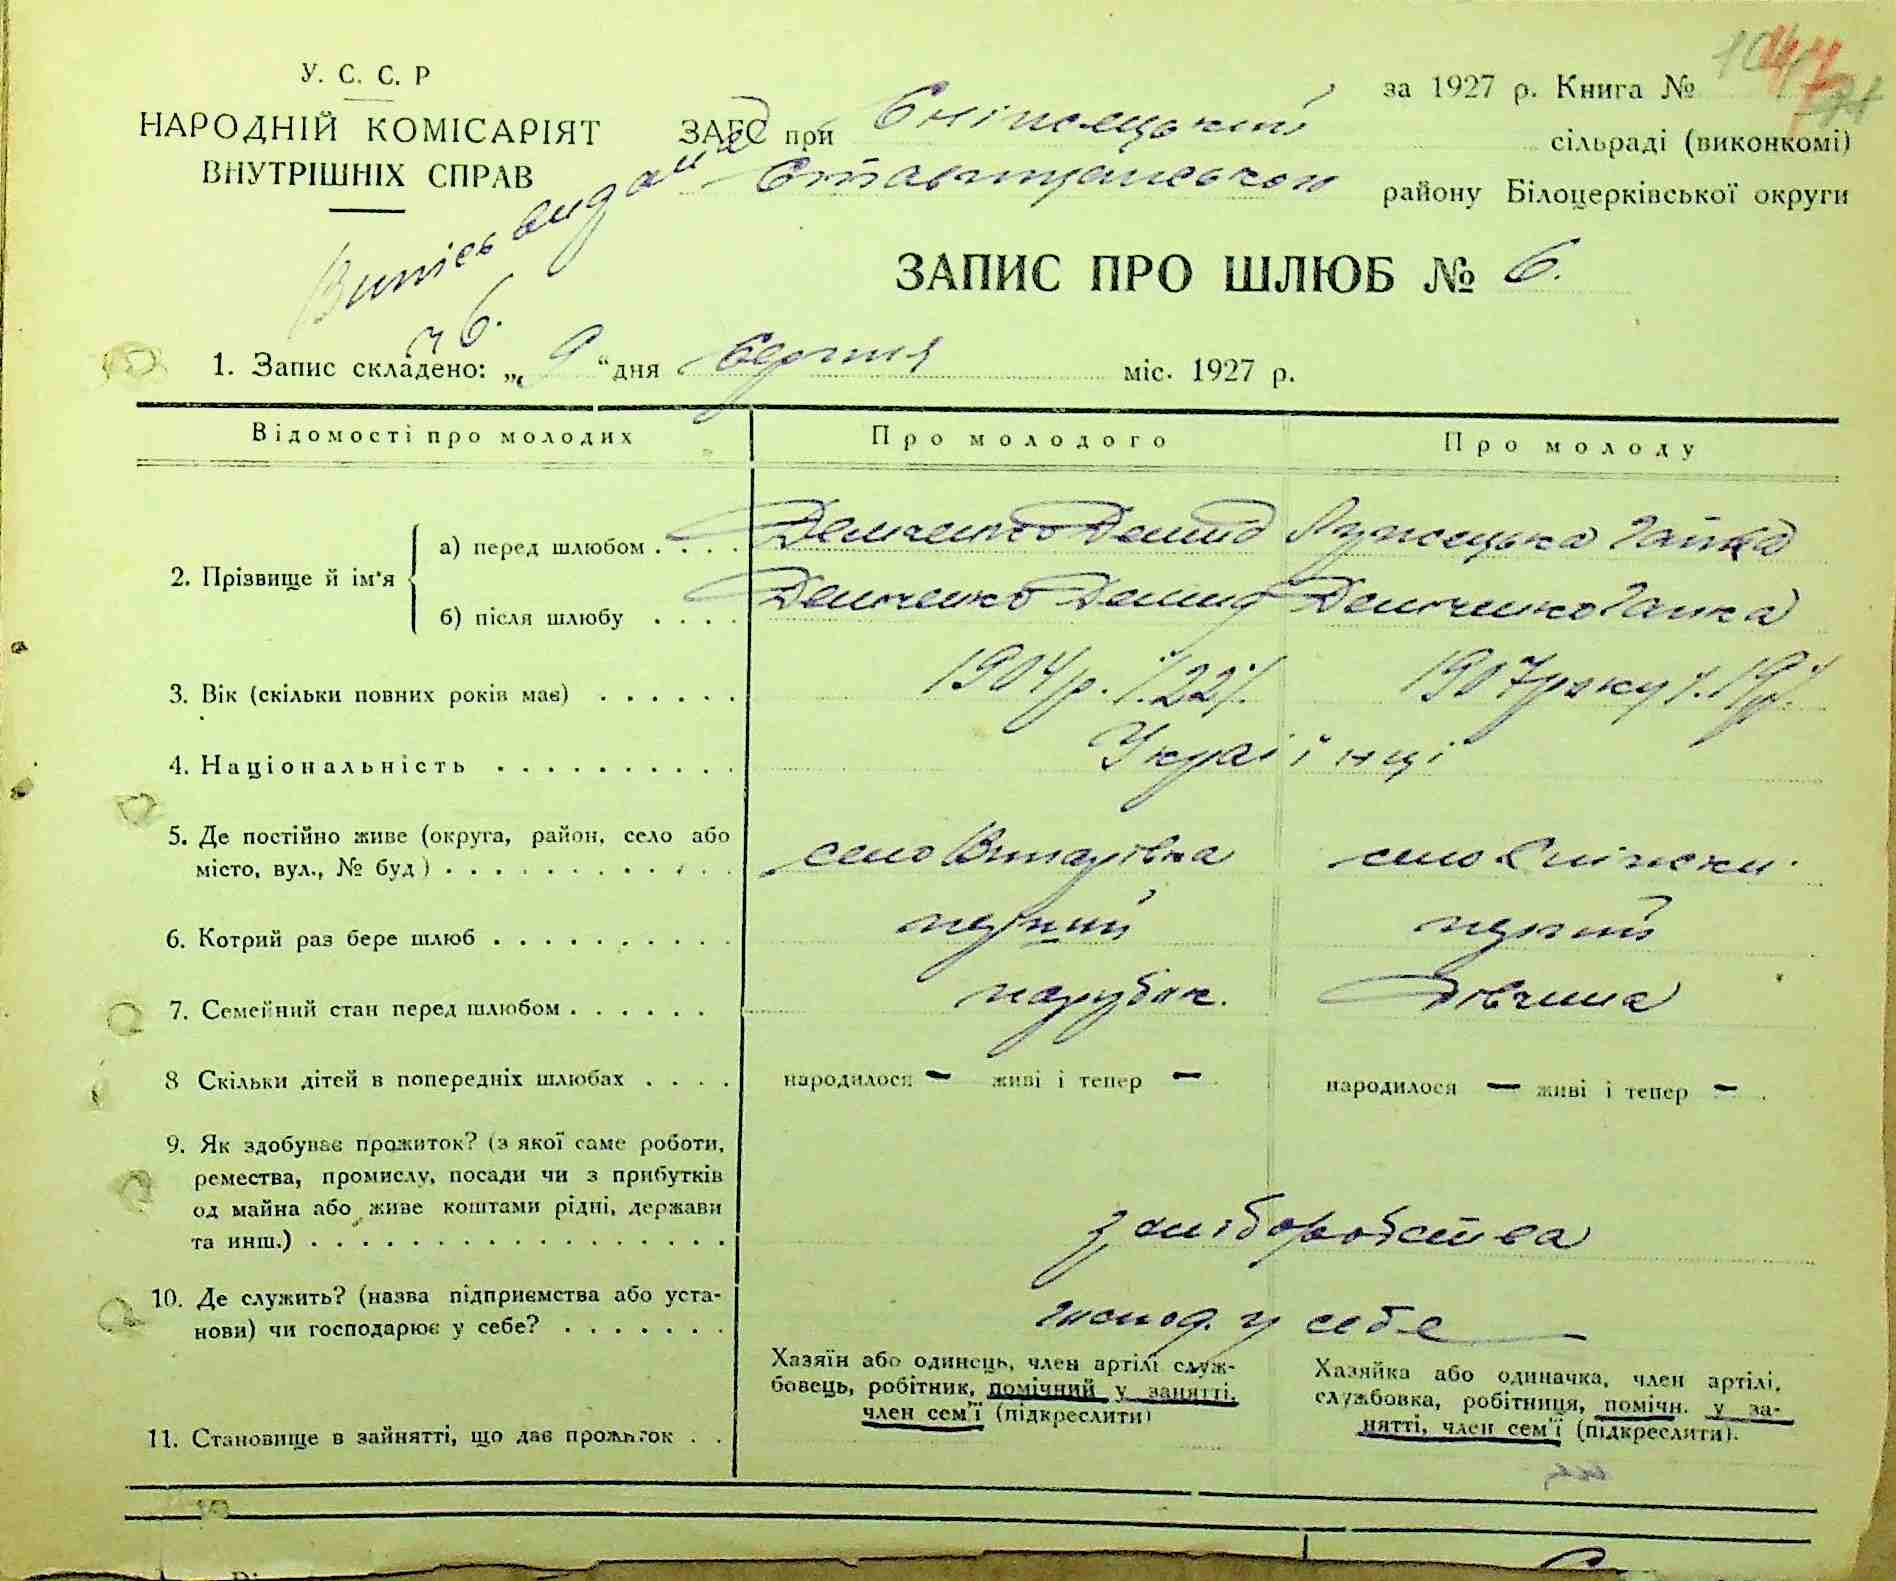 У. С. С. Р
НАРОДНІЙ КОМІСАРІЯТ
ВНУТРІШНІХ СПРАВ
за 1927 р. Книга №
ЗАГС при сільраді (виконкомі)
Ставищанського району Білоцерківської округи
Випись видана
ч 6.
ЗАПИС ПРО ШЛЮБ № 6.
1. Запис складено: „ 9 “ дня серпня міс. 1927 р.
Відомості про молодих Про молодого Про молоду
2. Прізвище й ім'я
а) перед шлюбом . . . . Демченко Демид Ганка
б) після шлюбу . . . . Демченко Демид Демченко Ганка
3. Вік (скільки повних років має) . . . . . . 1904 р. /22/. 1907 року /19/.
4. Національність . . . . . . . . . . Українці
5. Де постійно живе (округа, район, село або
місто, вул., № буд) . . . . . . . . . . . . село Винарівка село
6. Котрий раз бере шлюб . . . . . . . . . . перший перший
7. Семейний стан перед шлюбом . . . . . . парубок. дівчина
8 Скільки дітей в попередніх шлюбах . . . . народилося – живі і тепер – . народилося – живі і тепер – .
9. Як здобуває прожиток? (з якої саме роботи,
ремества, промислу, посади чи з прибутків
од майна або живе коштами рідні, держави
та инш.) . . . . . . . . . . . . . . . . . . з хліборобства
10. Де служить? (назва підприємства або уста-
нови) чи господарює у себе? . . . . . . . господ. у себе
Хазяїн або одинець, член артілі служ-
бовець, робітник, помічний у занятті,
член сем'ї (підкреслити)
Хазяйка або одиначка, член артілі,
службовка, робітниця, помічн. у за-
нятті, член сем'ї (підкреслити).
11. Становище в зайнятті, що дає прожиток . .